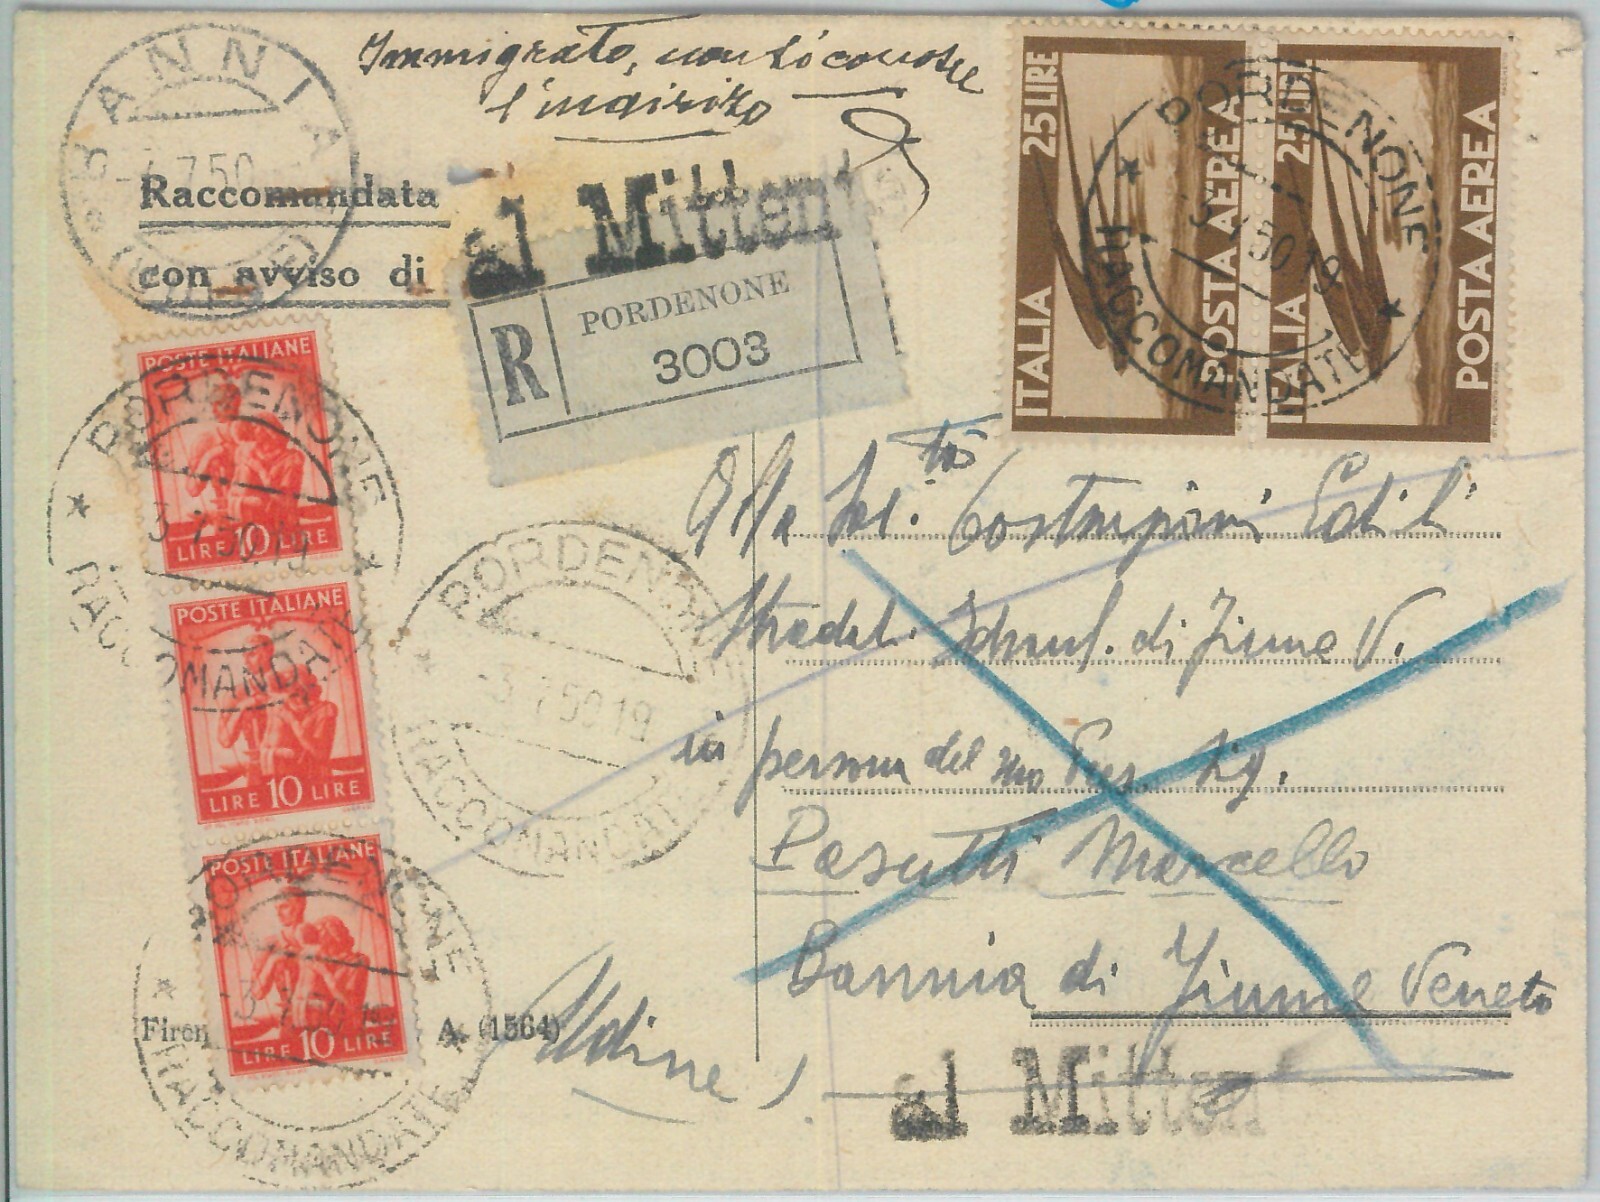 Immigrato, non si conosce
l'indirizzo
BANNIA
7.50
Raccomandata
con avviso di
al Mittent
R
PORDENONE
3003
25 LIRE
ITALIA
POSTA AEREA
25 LIRE
ITALIA
POSTA AEREA
PORDENONE
50 19
RACCOMANDATE
POSTE ITALIANE
LIRE 10 LIRE
PORDENONE
-3.7.50.19
RACCOMANDATE
POSTE ITALIANE
LIRE 10 LIRE
PORDENONE
-3.7.50 19
RACCOMANDATE
POSTE ITALIANE
LIRE 10 LIRE
PORDENONE
-3.7.50.19
RACCOMANDATE
Firen A. (1564)
Alla Soc.tà Costruzioni Edili
Stradal. Idraul. di Fiume V.
in persona del suo Pres. Sig.
Pasutti Marcello
Bannia di Fiume Veneto
Udine
al Mittent